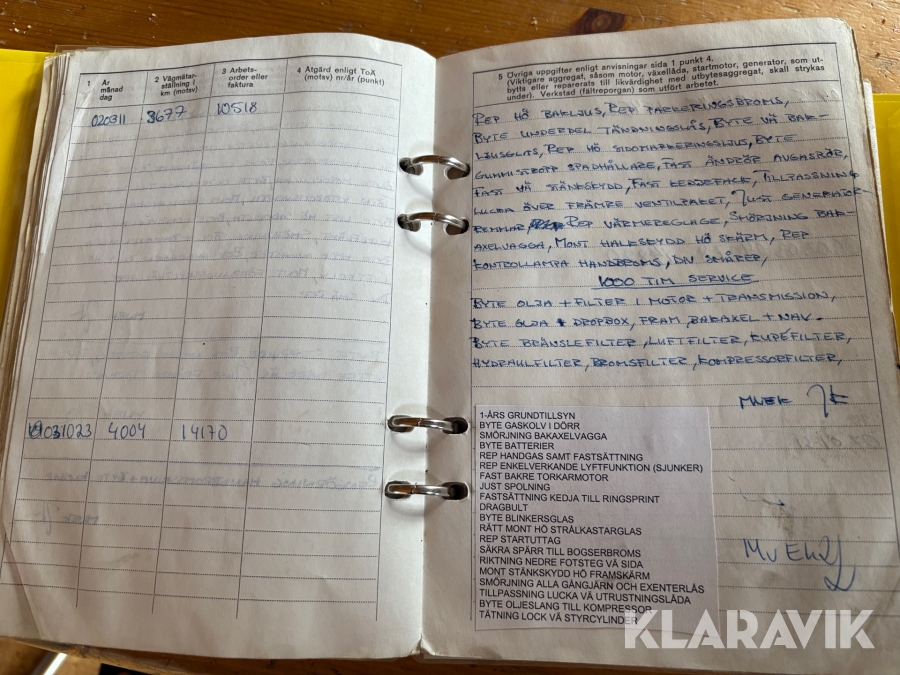 1 År månad dag
2 Vägmätar-
ställning i
km (motsv)
3 Arbets-
order eller
faktura
4 Åtgärd enligt ToA
(motsv) nr/år (punkt)
020311 3677 10518
031023 4004 14170
5 Övriga uppgifter enligt anvisningar sida 1 punkt 4.
(Viktigare aggregat, såsom motor, växellåda, startmotor, generator, som ut-
bytts eller reparerats till likvärdighet med utbytesaggregat, skall strykas
under). Verkstad (fältreporgan) som utfört arbetet.
REP HÖ BAKLJUS, REP PARKERINGSBROMS,
BYTE UNDERDEL TÄNDNINGSLÅS, BYTE VÄ BAK-
LJUSGLAS, REP HÖ SIDOMARKERINGSLJUS, BYTE
GUMMISTROPP SPADHÅLLARE, FAST ÄNDRÖR AVGASRÖR,
FAST VÄ STÄNKSKYDD, FAST KEDJEFACK, TILLPASSNING
LUCKA ÖVER FRÄMRE VENTILPAKET, JUST GENERATOR-
REMMAR REP VÄRMEREGLAGE, SMÖRJNING BAK-
AXELVAGGA, MONT HALKSKYDD HÖ SKÄRM, REP
KONTROLLAMPA HANDBROMS, DIV SMÅREP,
1000 TIM SERVICE
BYTE OLJA + FILTER I MOTOR + TRANSMISSION,
BYTE OLJA DROPBOX, FRAM, BAKAXEL + NAV.
BYTE BRÄNSLEFILTER, LUFTFILTER, KUPÉFILTER,
HYDRAULFILTER, BROMSFILTER, KOMPRESSORFILTER,
MVEK
1-ÅRS GRUNDTILLSYN
BYTE GASKOLV I DÖRR
SMÖRJNING BAKAXELVAGGA
BYTE BATTERIER
REP HANDGAS SAMT FASTSÄTTNING
REP ENKELVERKANDE LYFTFUNKTION (SJUNKER)
FAST BAKRE TORKARMOTOR
JUST SPOLNING
FASTSÄTTNING KEDJA TILL RINGSPRINT
DRAGBULT
BYTE BLINKERSGLAS
RÄTT MONT HÖ STRÅLKASTARGLAS
REP STARTUTTAG
SÄKRA SPÄRR TILL BOGSERBROMS
RIKTNING NEDRE FOTSTEG VÄ SIDA
MONT STÄNKSKYDD HÖ FRAMSKÄRM
SMÖRJNING ALLA GÅNGJÄRN OCH EXENTERLÅS
TILLPASSNING LUCKA VÄ UTRUSTNINGSLÅDA
BYTE OLJESLANG TILL KOMPRESSOR
TÄTNING LOCK VÄ STYRCYLINDER
KLARAVIK